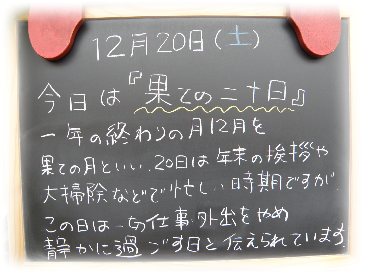 12月20日(土)
今日は『果ての二十日』
一年の終わりの月12月を
果ての月といい、20日は年末の挨拶や
大掃除などで忙しい時期ですが
この日は一切仕事・外出をやめ
静かに過ごす日と伝えられています